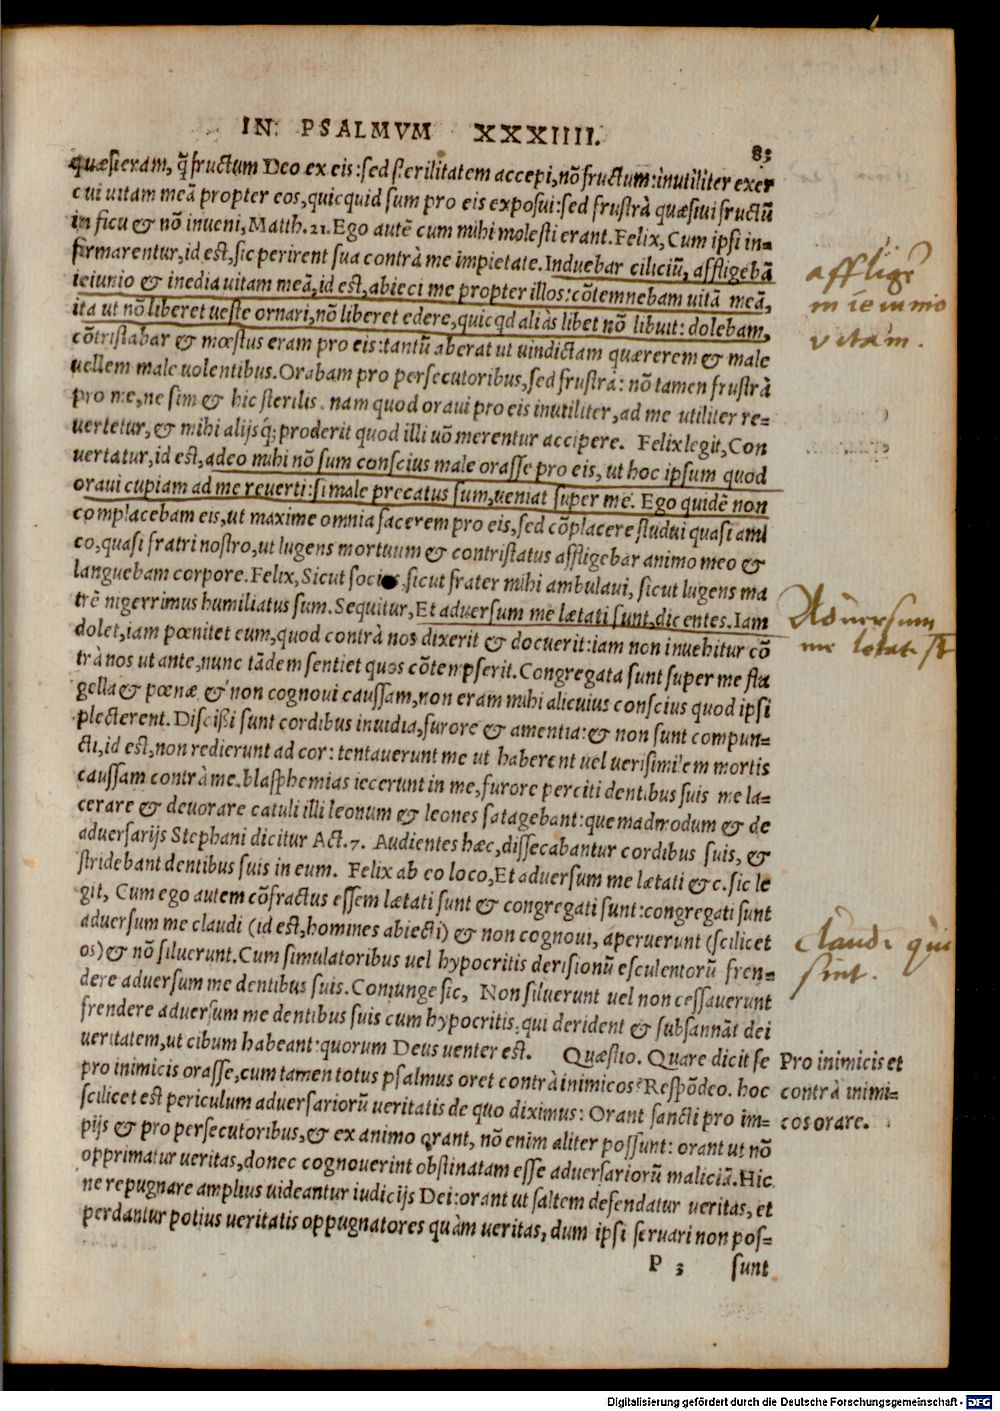 IN PSALMVM XXXIIII. 83
quæsieram, q̃ fructum Deo ex eis: sed sterilitatem accepi, nõ fructum: inutiliter exer
cui uitam meã propter eos, quicquid sum pro eis exposui: sed frustrà quæsiui fructũ
in ficu & nõ inueni, Matth. 21. Ego autẽ cum mihi molesti erant. Felix, Cum ipsi in=
firmarentur, id est, sic perirent sua contrà me impietate. Induebar ciliciũ, affligebã
ieiunio & inedia uitam meã, id est, abieci me propter illos: cõtemnebam uitã meã,
ita ut nõ liberet ueste ornari, nõ liberet edere, quicqd aliàs libet nõ libuit: dolebam,
cõtristabar & mœstus eram pro eis: tantũ aberat ut uindictam quærerem & male
uellem male uolentibus. Orabam pro persecutoribus, sed frustrà: nõ tamen frustrà
pro me, ne sim & hic sterilis. nam quod oraui pro eis inutiliter, ad me utiliter re=
uertetur, & mihi alijsq́; proderit quod illi nõ merentur accipere. Felix legit, Con
uertatur, id est, adeo mihi nõ sum conscius male orasse pro eis, ut hoc ipsum quod
oraui cupiam ad me reuerti: si male precatus sum, ueniat super me. Ego quidẽ non
complacebam eis, ut maxime omnia facerem pro eis, sed cõplacere studui quasi ami
co, quasi fratri nostro, ut lugens mortuum & contristatus affligebar animo meo &
languebam corpore. Felix, Sicut socius, sicut frater mihi ambulaui, sicut lugens ma
trẽ nigerrimus humiliatus sum. Sequitur, Et aduersum me lætati sunt, dicentes. Iam
dolet, iam pœnitet eum, quod contrà nos dixerit & docuerit: iam non inuehitur cõ
trà nos ut ante, nunc tãdem sentiet quos cõtempserit. Congregata sunt super me fla
gella & pœnæ, & non cognoui caussam, non eram mihi alicuius conscius quod ipsi
plecterent. Discissi sunt cordibus inuidia, furore & amentia: & non sunt compun=
cti, id est, non redierunt ad cor: tentauerunt me ut haberent uel uerisimilem mortis
caussam contrà me. blasphemias iecerunt in me, furore perciti dentibus suis me la=
cerare & deuorare catuli illi leonum & leones satagebant: quemadmodum & de
aduersarijs Stephani dicitur Act. 7. Audientes hæc, dissecabantur cordibus suis, &
stridebant dentibus suis in eum. Felix ab eo loco, Et aduersum me lætati & c. sic le
git, Cum ego autem cõfractus essem lætati sunt & congregati sunt: congregati sunt
aduersum me claudi (id est, homines abiecti) & non cognoui, aperuerunt (scilicet
os) & nõ siluerunt. Cum simulatoribus uel hypocritis derisionũ esculentorũ fren=
dere aduersum me dentibus suis. Coniunge sic, Non siluerunt uel non cessauerunt
frendere aduersum me dentibus suis cum hypocritis, qui derident & subsannãt dei
ueritatem, ut cibum habeant: quorum Deus uenter est. Quæstio. Quare dicit se
pro inimicis orasse, cum tamen totus psalmus oret contrà inimicos? Respõdeo. hoc
scilicet est periculum aduersariorũ ueritatis de quo diximus: Orant sancti pro im=
pijs & pro persecutoribus, & ex animo orant, nõ enim aliter possunt: orant ut nõ
opprimatur ueritas, donec cognouerint obstinatam esse aduersariorũ maliciã. Hic
ne repugnare amplius uideantur iudicijs Dei: orant ut saltem defendatur ueritas, et
perdantur potius ueritatis oppugnatores quàm ueritas, dum ipsi seruari non pos=
P 3 sunt
affliger
in ieiunio
vitam.
Aduersum
me letati st
claudi qui
sint.
Pro inimicis et
contrà inimi=
cos orare.
Digitalisierung gefördert durch die Deutsche Forschungsgemeinschaft - DFG